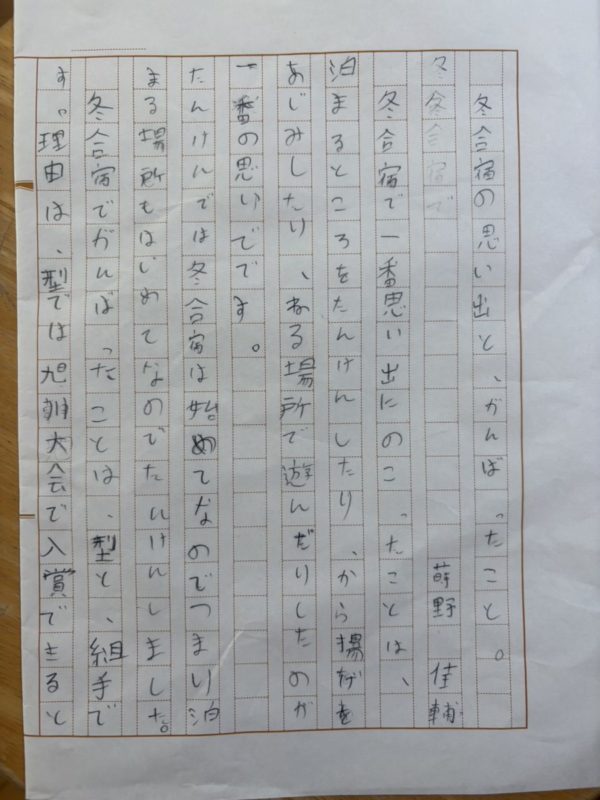 冬合宿の思い出と、がんばったこと。
冬冬合宿で
蒔野　佳輔
冬合宿で一番思い出にのこったことは、
泊まるところをたんけんしたり、から揚げを
あじみしたり、ねる場所で遊んだりしたのが
一番の思いでです。
たんけんでは冬合宿は始めてなのでつまり泊
まる場所もはじめてなのでたんけんしました。
冬合宿でがんばったことは、型と、組手で
す。理由は、型では旭朝大会で入賞できると